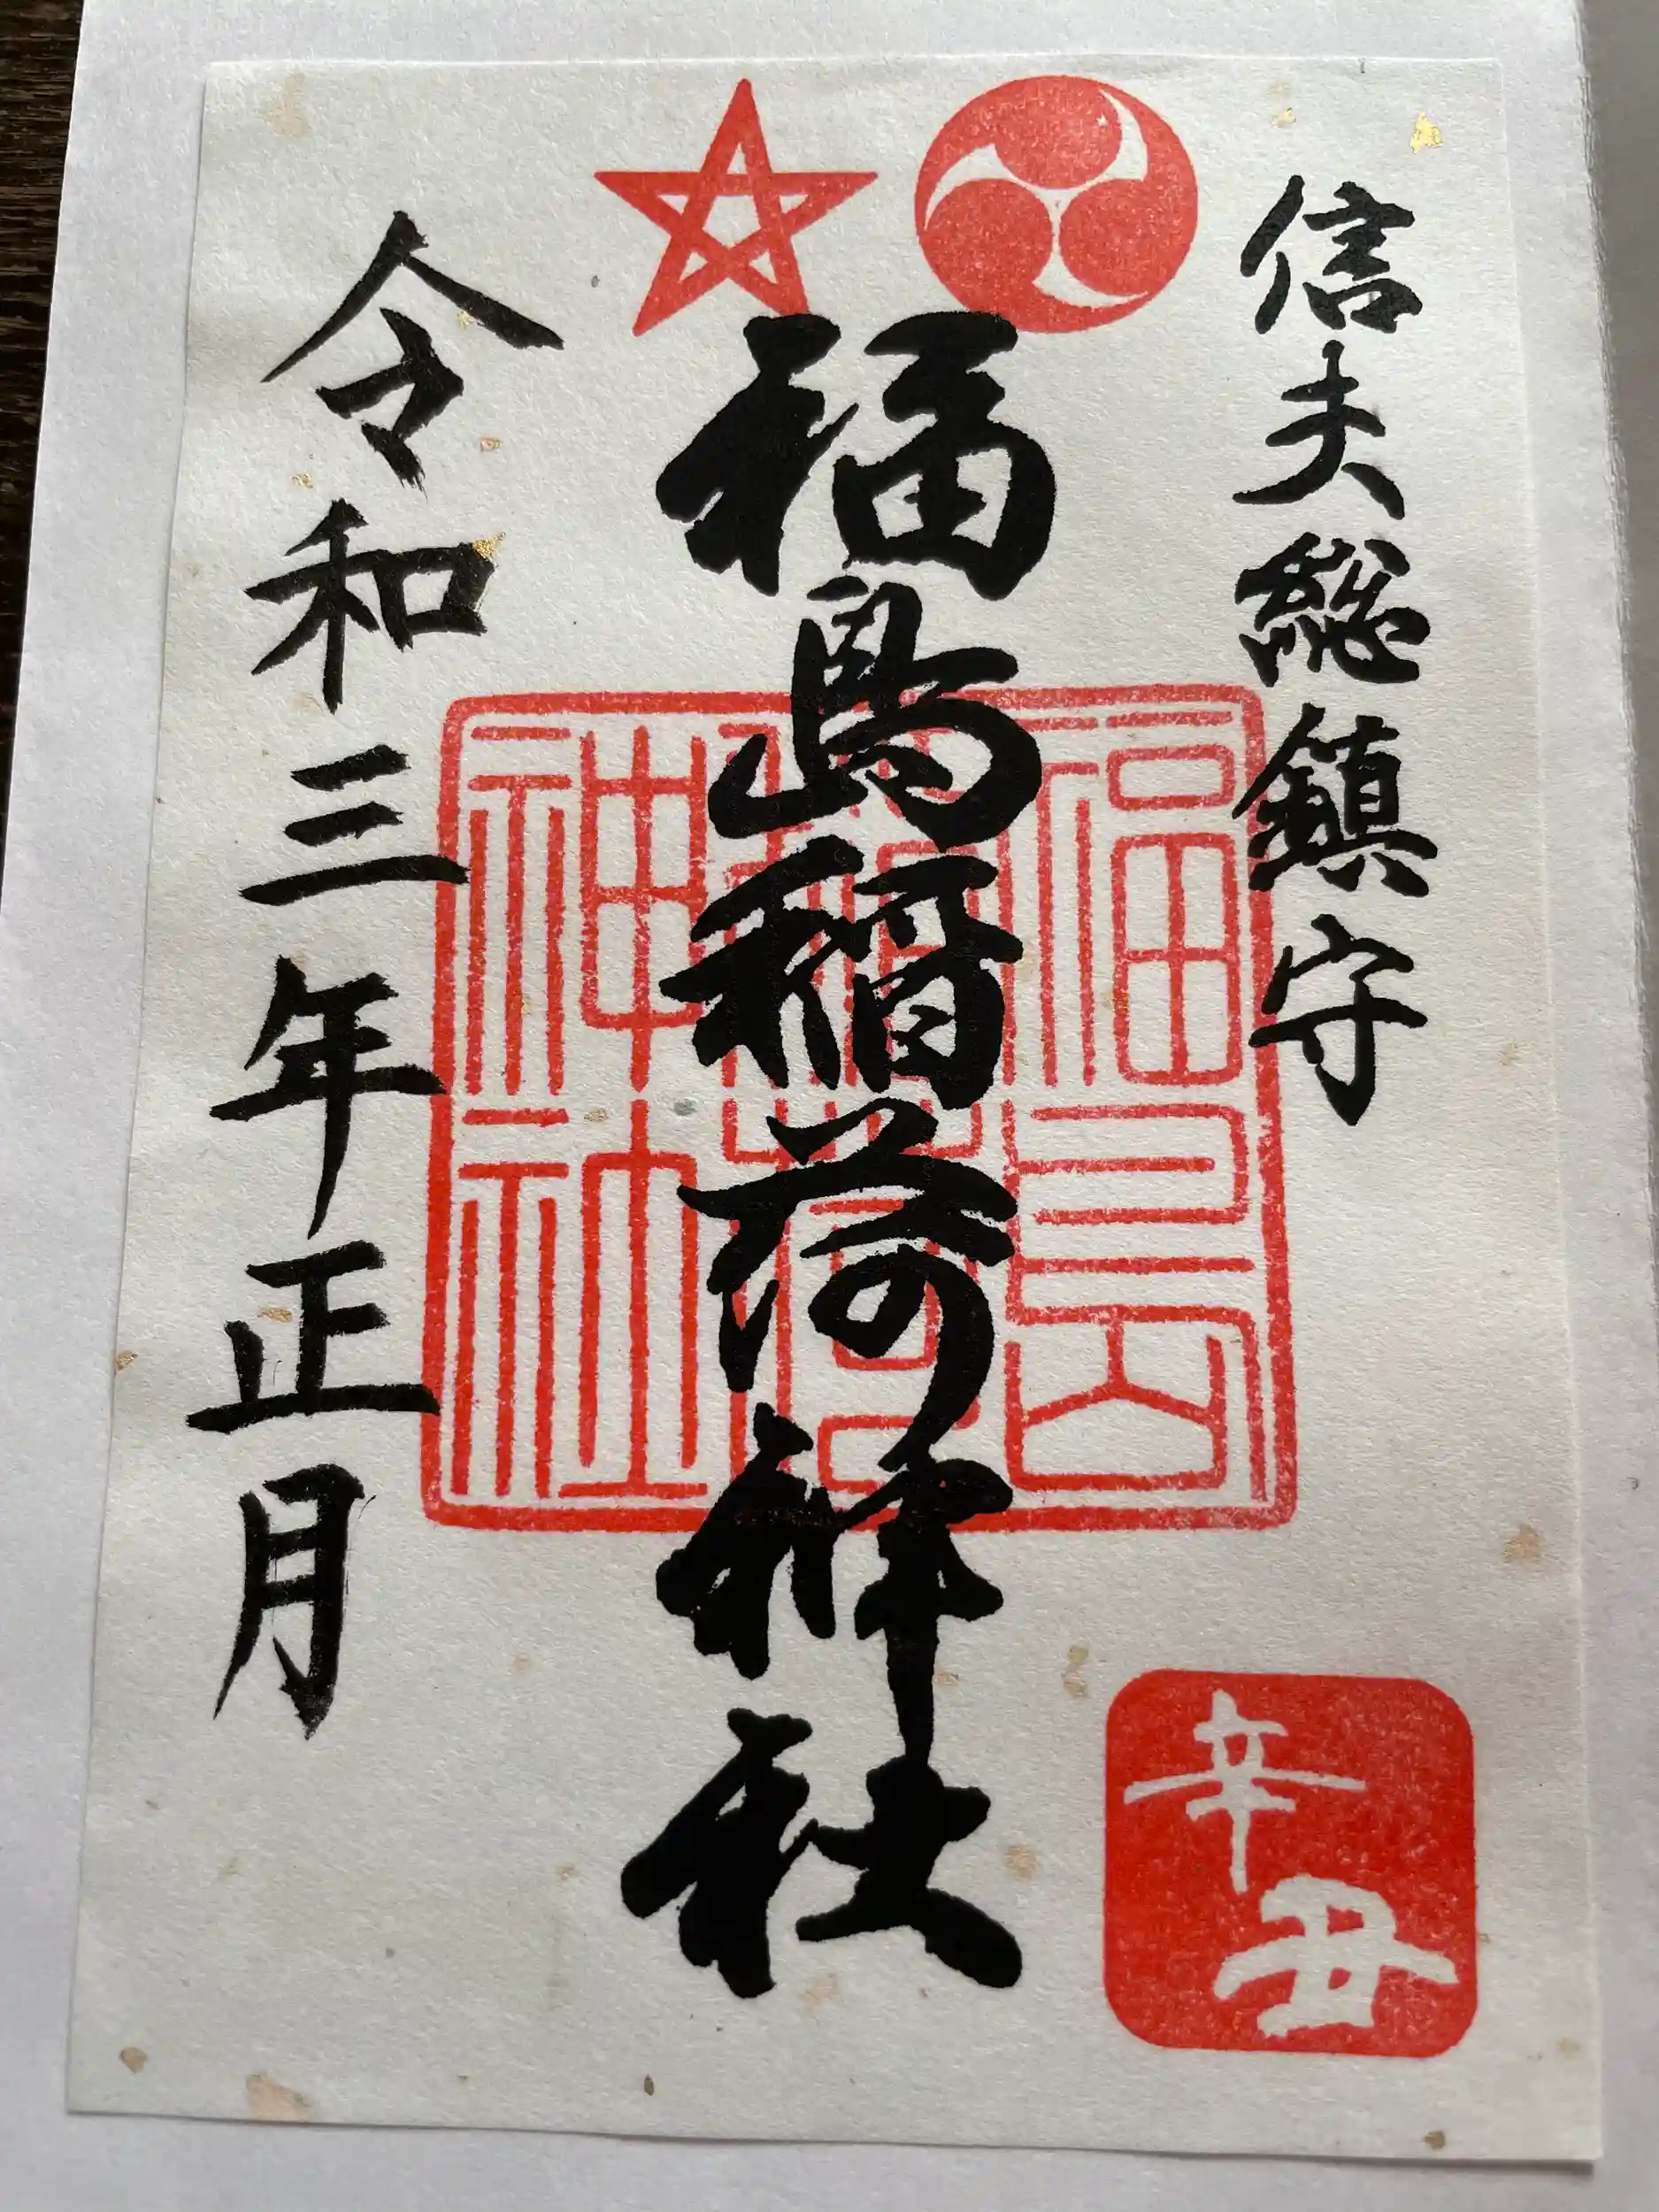 信夫総鎮守
福島稲荷神社
福島稲荷神社
辛丑
令和三年正月